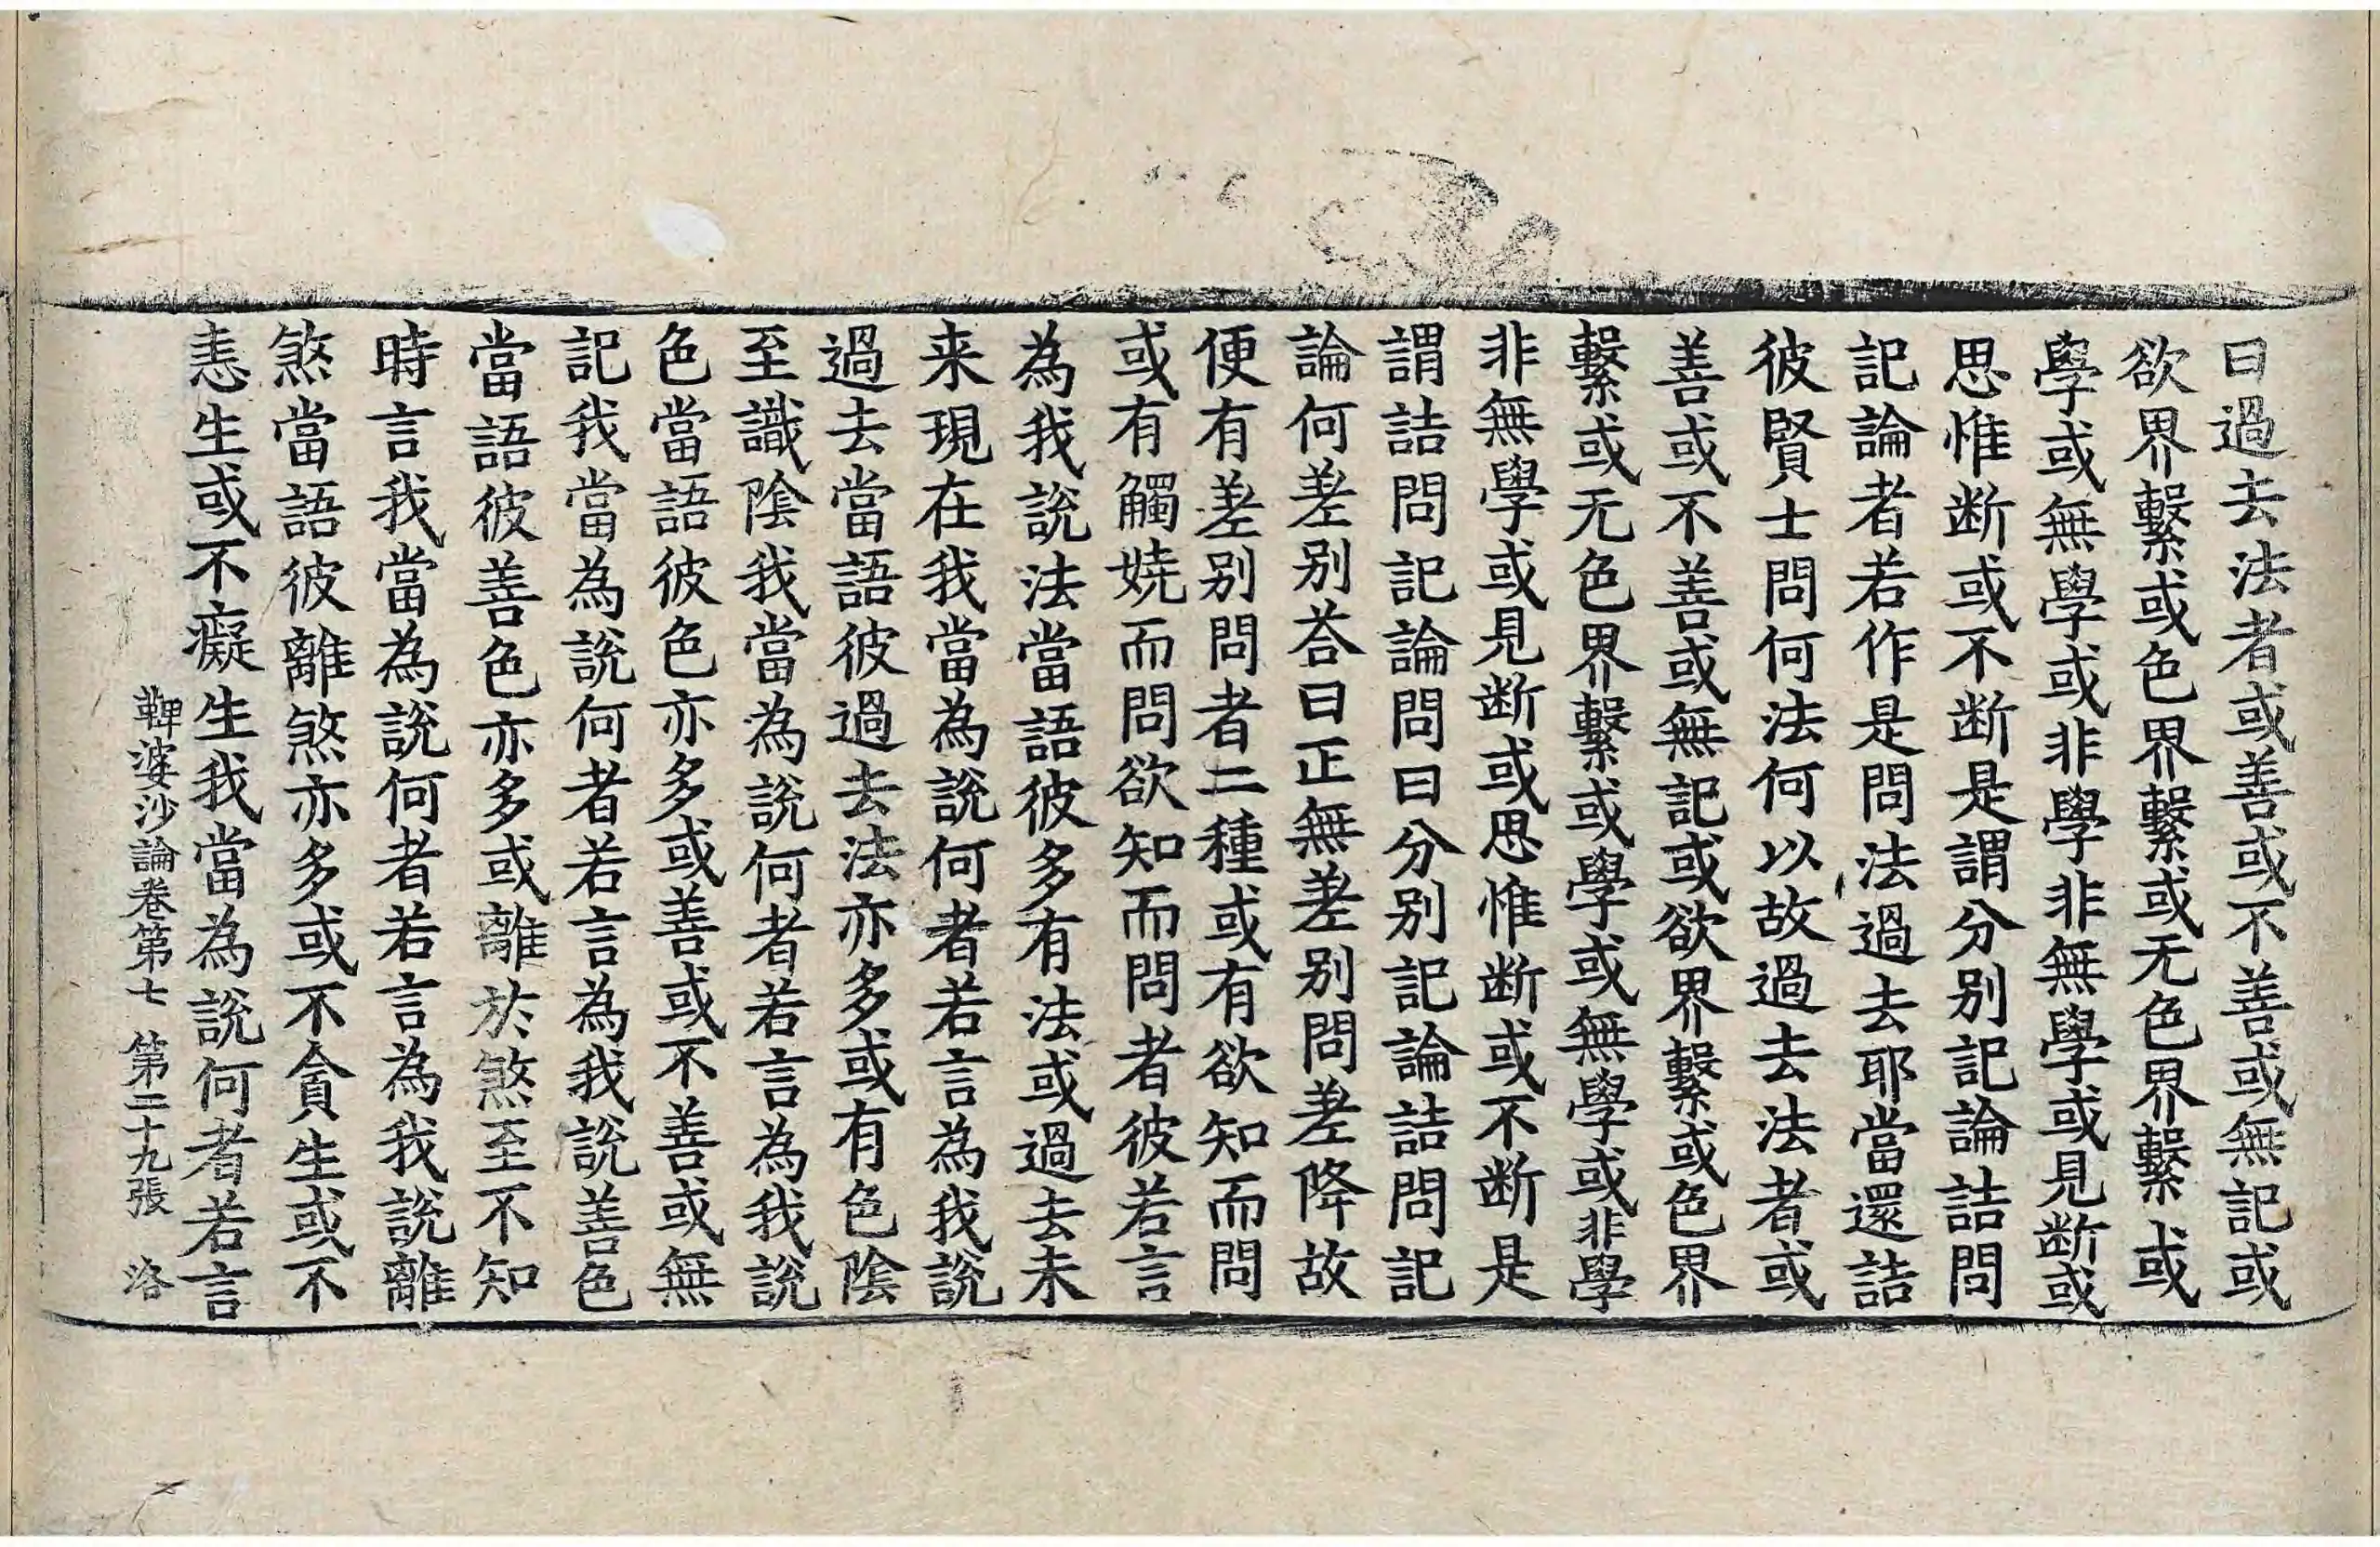 曰過去法者或善或不善或無記或
欲界繫或色界繫或无色界繫或
學或無學或非學非無學或見断或
思惟断或不断是謂分别記論詰問
記論者若作是問法過去耶當還詰
彼賢士問何法何以故過去法者或
善或不善或無記或欲界繫或色界
繫或无色界繫或學或無學或非學
非無學或見断或思惟断或不断是
謂詰問記論問曰分别記論詰問記
論何差别荅曰正無差别問差降故
便有差别問者二種或有欲知而問
或有觸嬈而問欲知而問者彼若言
為我說法當語彼多有法或過去未
来現在我當為說何者若言為我說
過去當語彼過去法亦多或有色陰
至識陰我當為說何者若言為我說
色當語彼色亦多或善或不善或無
記我當為說何者若言為我說善色
當語彼善色亦多或離於煞至不知
時言我當為說何者若言為我說離
煞當語彼離煞亦多或不貪生或不
恚生或不癡生我當為說何者若言
鞞婆沙論卷第七 第二十九張 洛